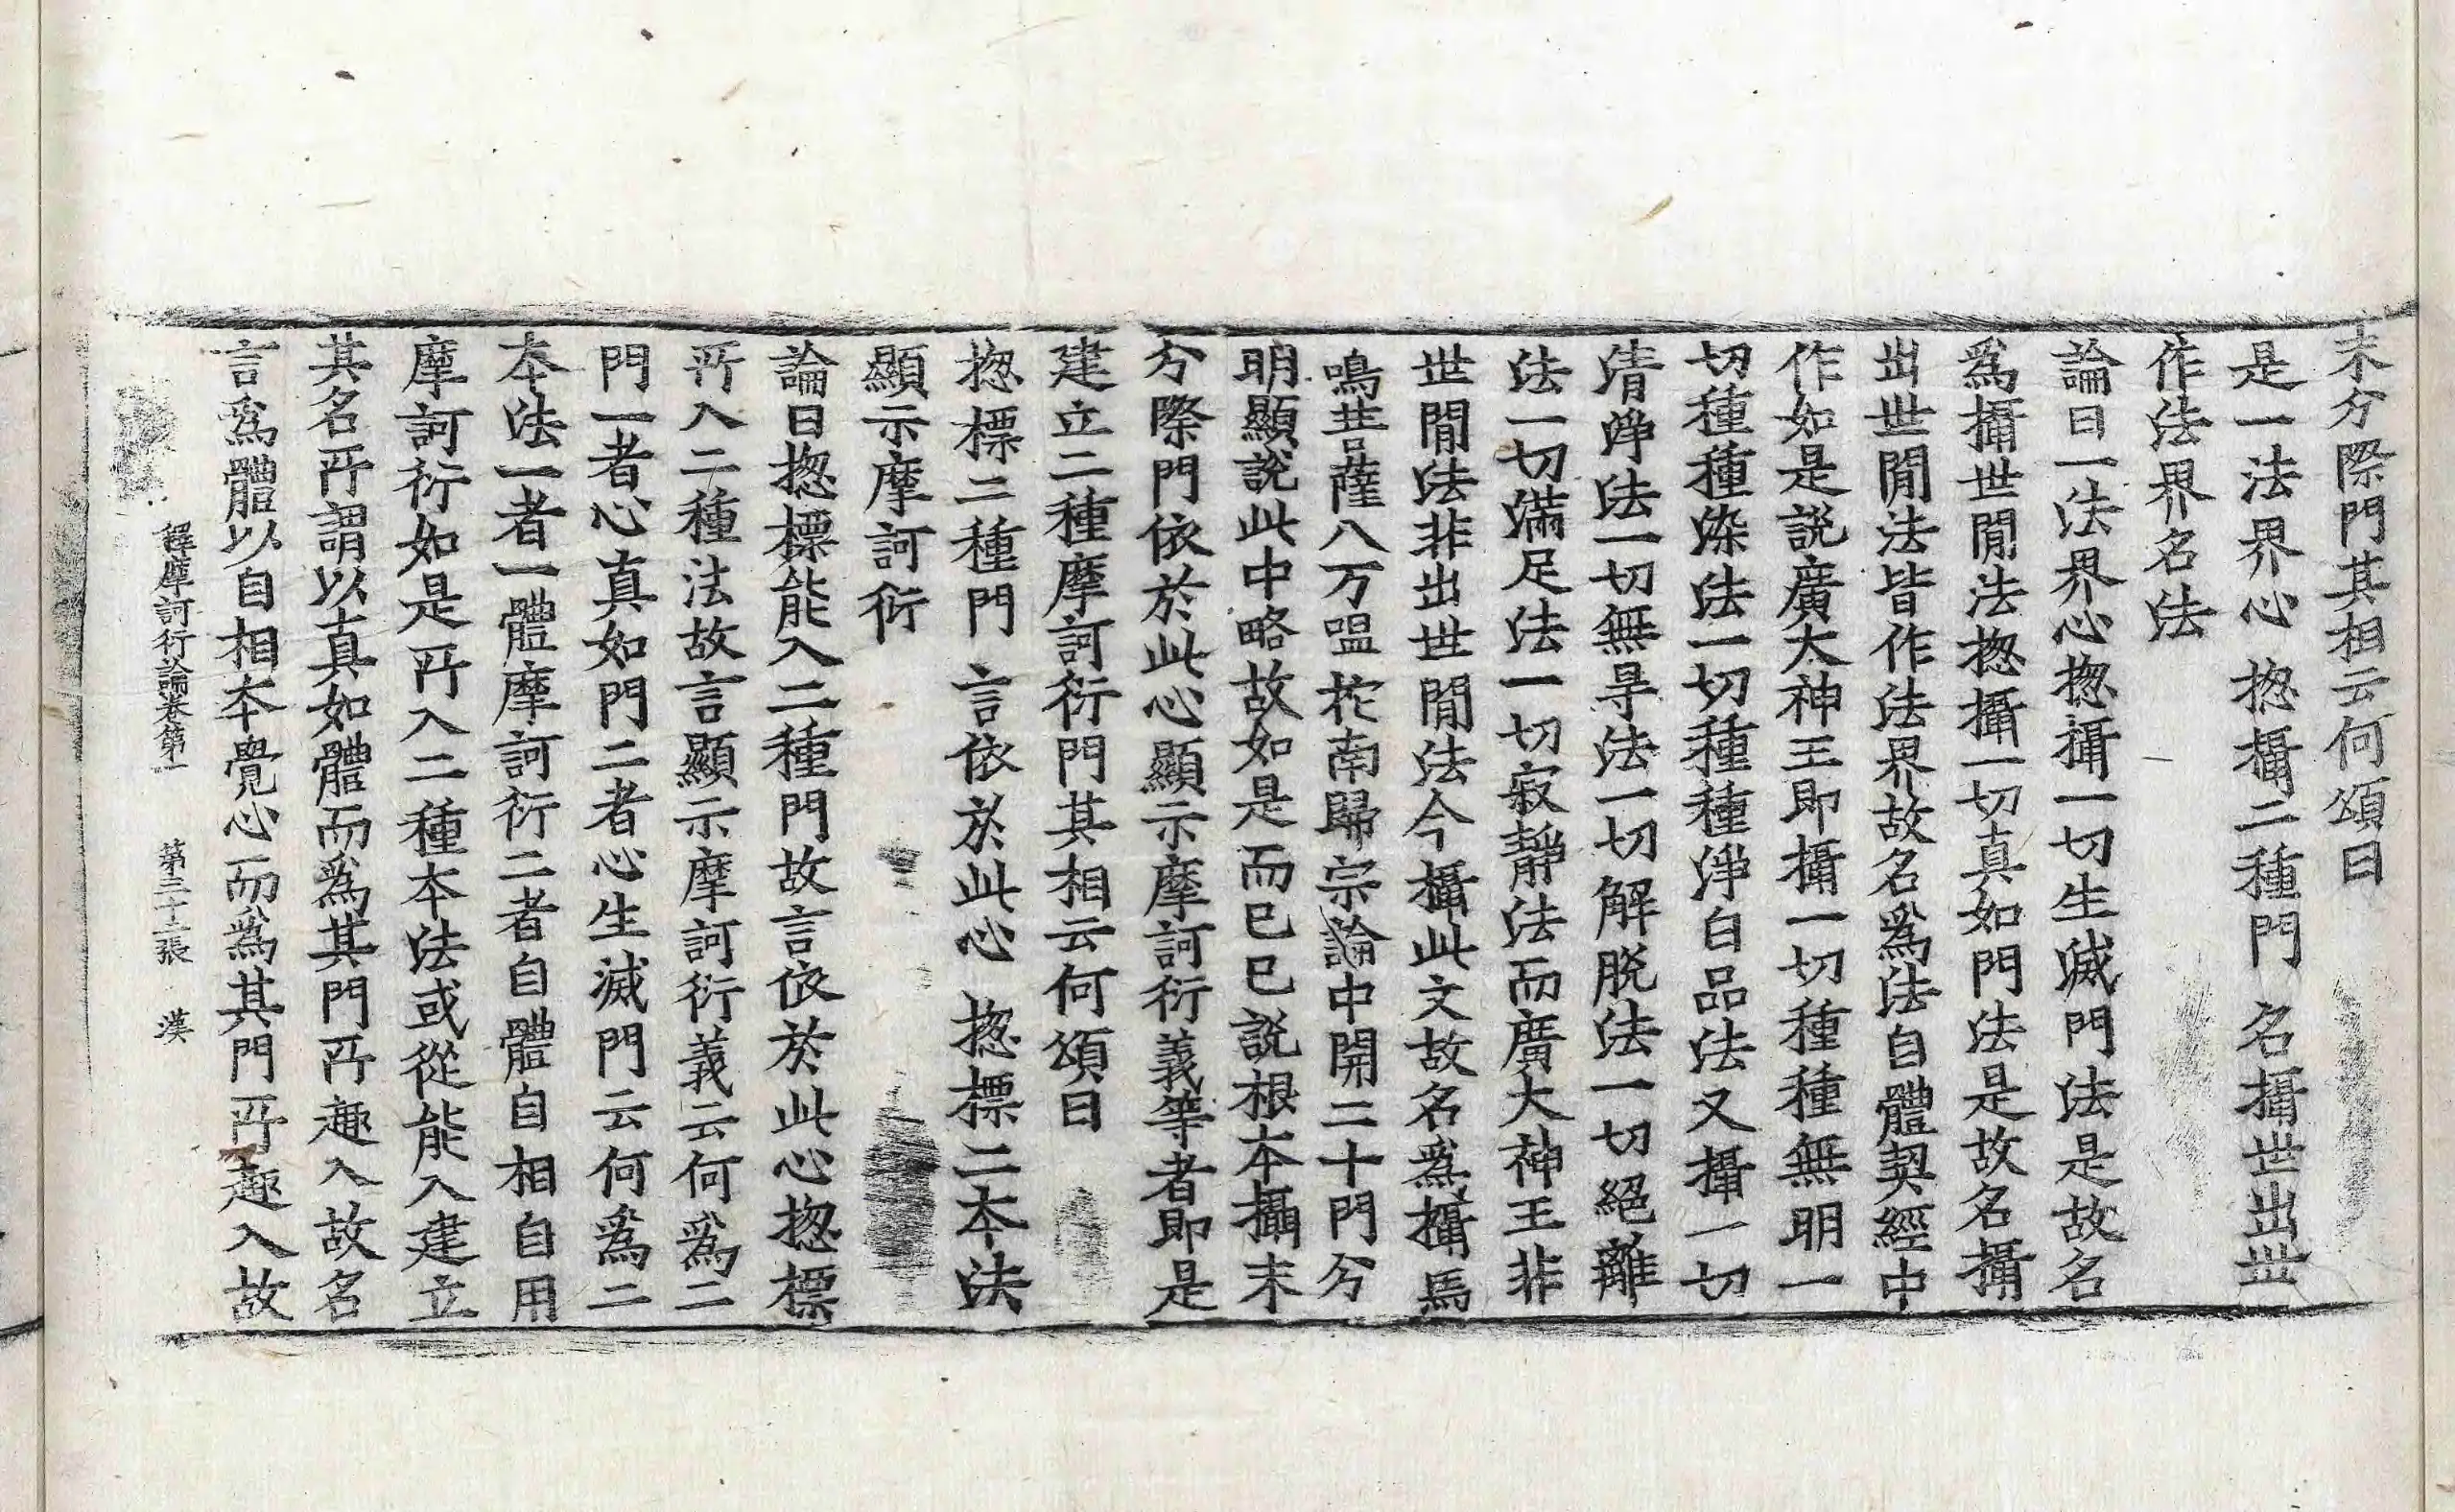 末分際門其相云何頌曰
是一法界心 揔攝二種門 名攝世出世
作法界名法
論曰一法界心揔攝一切生滅門法是故名
爲攝世閒法揔攝一切真如門法是故名攝
出世閒法皆作法界故名爲法自體契經中
作如是說廣大神王即攝一切種種無明一
切種種染法一切種種淨白品法又攝一切
清淨法一切無㝵法一切解脱法一切絕離
法一切滿足法一切寂靜法而廣大神王非
世閒法非出世閒法今攝此文故名爲攝馬
鳴菩薩八万嗢柁南歸宗論中開三十門分
明顯說此中略故如是而已已說根本攝末
分際門依於此心顯示摩訶衍義等者即是
建立二種摩訶衍門其相云何頌曰
揔標二種門 言依於此心 揔標二本法
顯示摩訶衍
論曰揔標能入二種門故言依於此心揔標
所入二種法故言顯示摩訶衍義云何爲二
門一者心真如門二者心生滅門云何爲二
本法一者一體摩訶衍二者自體自相自用
摩訶衍如是所入二種本法或從能入建立
其名所謂以真如體而爲其門所趣入故名
言爲體以自相本覺心而爲其門所趣入故
釋摩訶衍論卷第一 第三十二張 漢